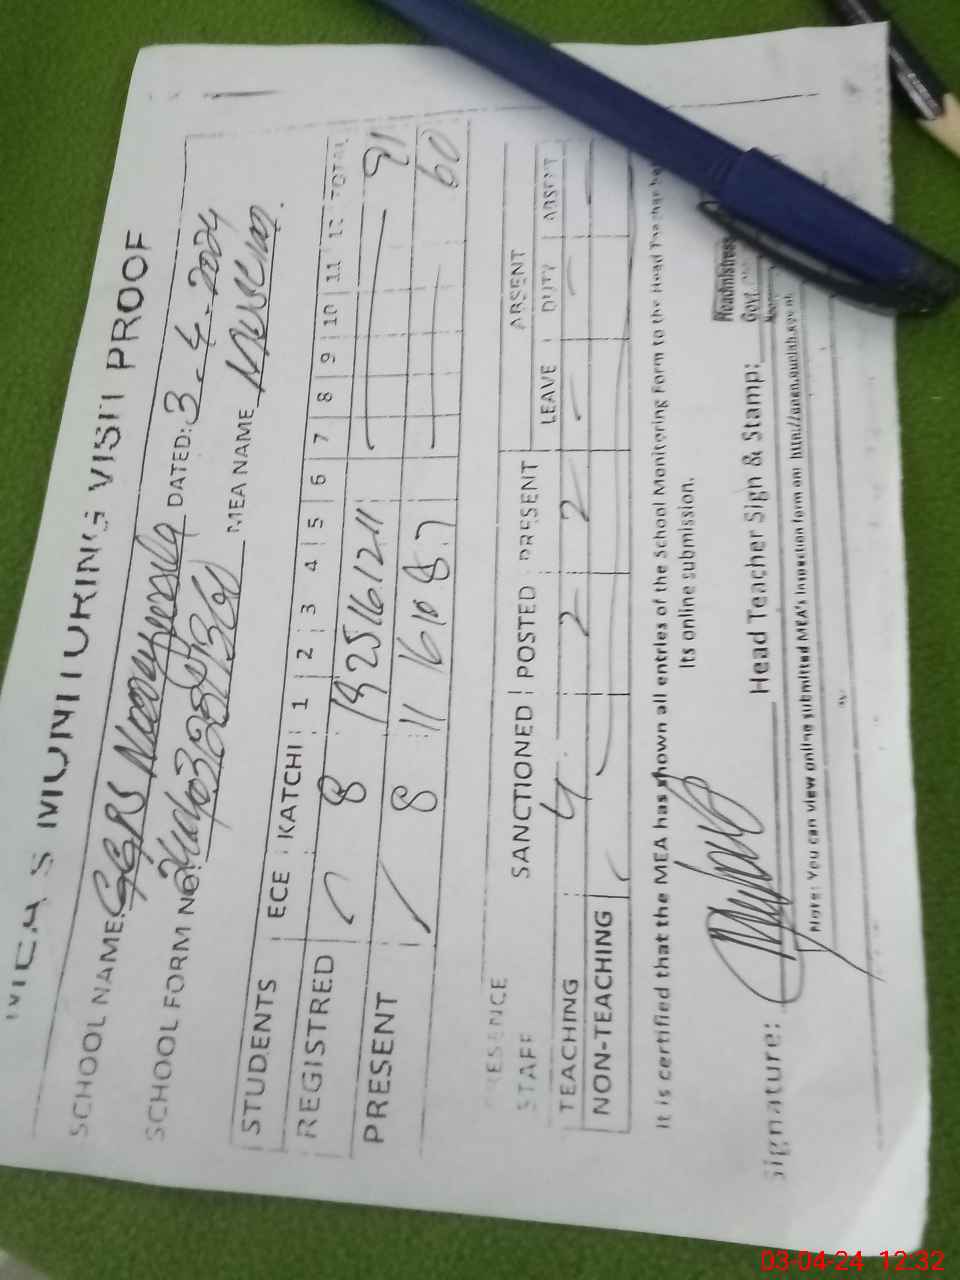 MEA'S MONITORING VISIT PROOF
SCHOOL NAME: GGPS DATED: 3.4.2024
SCHOOL FORM NO: MEA NAME
STUDENTS ECE KATCHI 1 2 3 4 5 6 7 8 9 10 11 12 TOTAL
REGISTRED 8 19 25 16 12 11 91
PRESENT 8 11 16 10 8 7 60
PRESENCE ABSENT
STAFF SANCTIONED POSTED PRESENT LEAVE DUTY ABSENT
TEACHING 4 2 2
NON-TEACHING
It is certified that the MEA has shown all entries of the School Monitoring Form to the Head Teacher
Its online submission.
Headmistress
Govt.
Signature: Head Teacher Sign & Stamp:
Note: You can view online submitted MEA's Inspection form on:
03-04-24 12:32